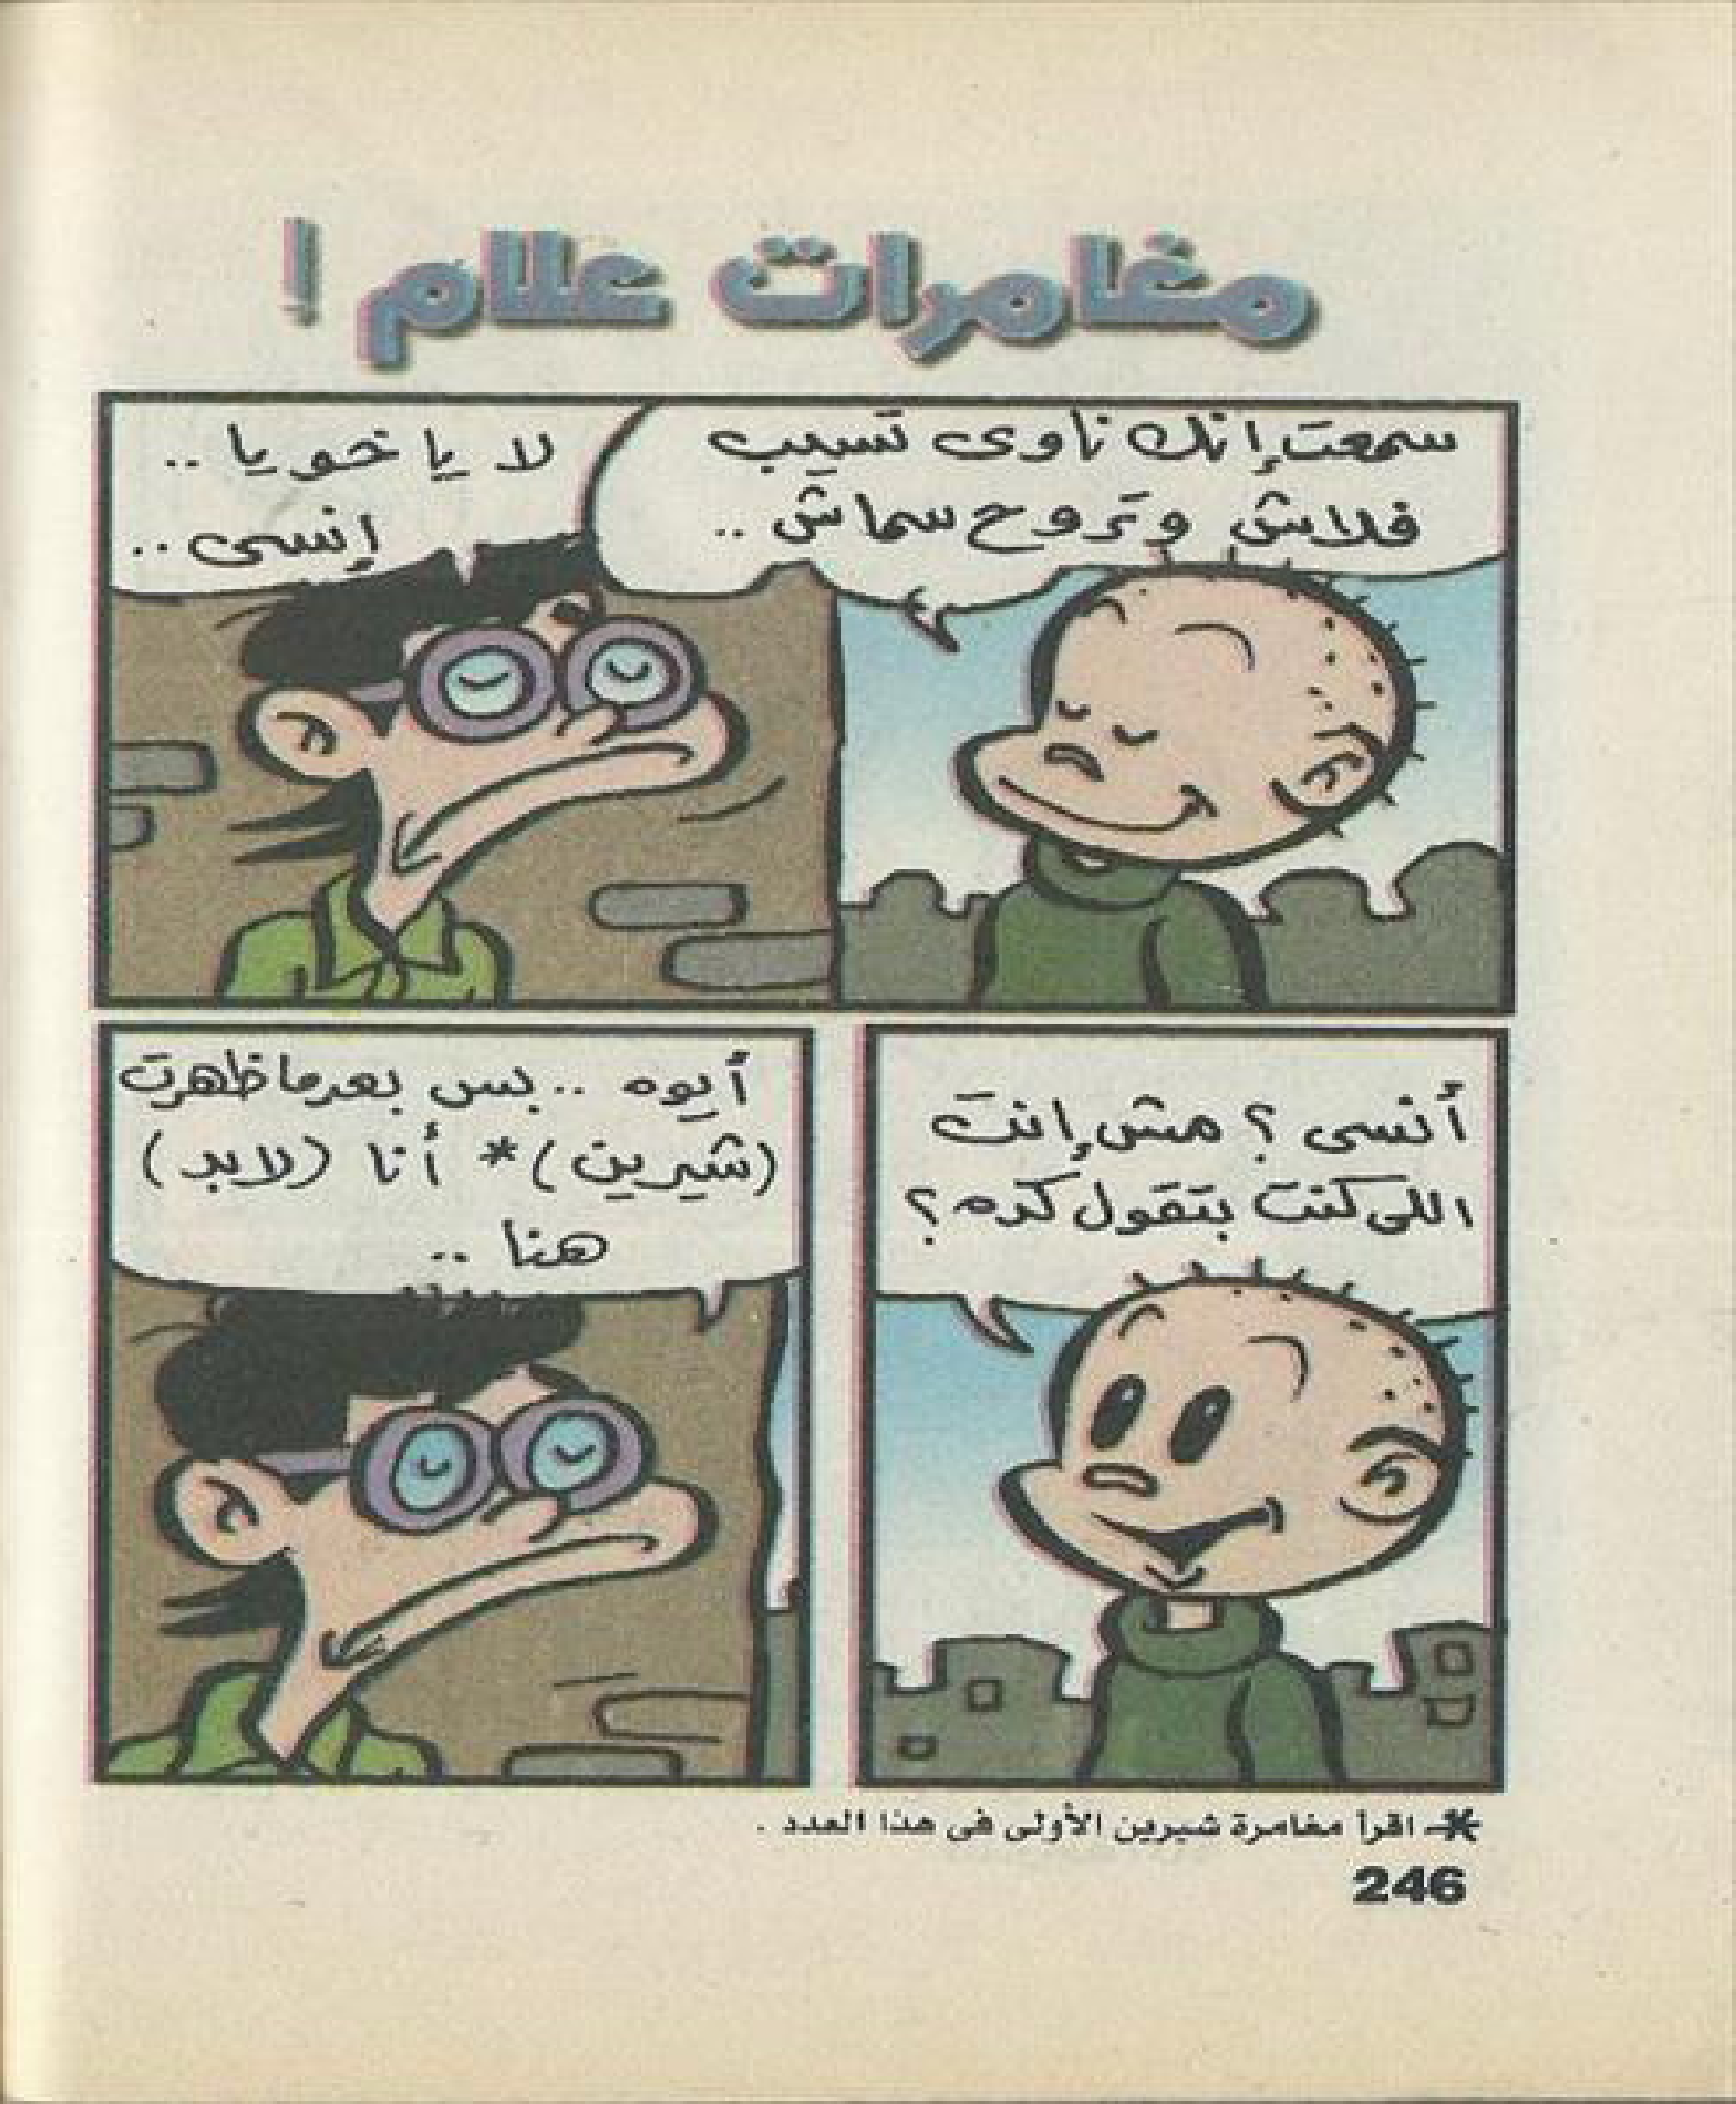 مغامرات علام !
سمعت إنك ناوى تسيب
فلاش وتروح سماش ..
لا يا خويا ..
إنسى ..
أنسى ؟ مش إنت
اللى كنت بتقول كده ؟
أيوه .. بس بعد ما ظهرت
(شيرين)* أنا (لابد)
هنا ..
* اقرأ مغامرة شيرين الأولى فى هذا العدد .
246